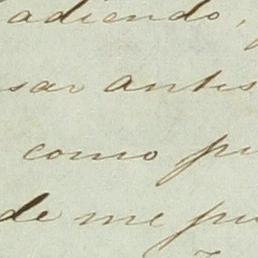 adiendo,
sar antes
como pu
de me pu